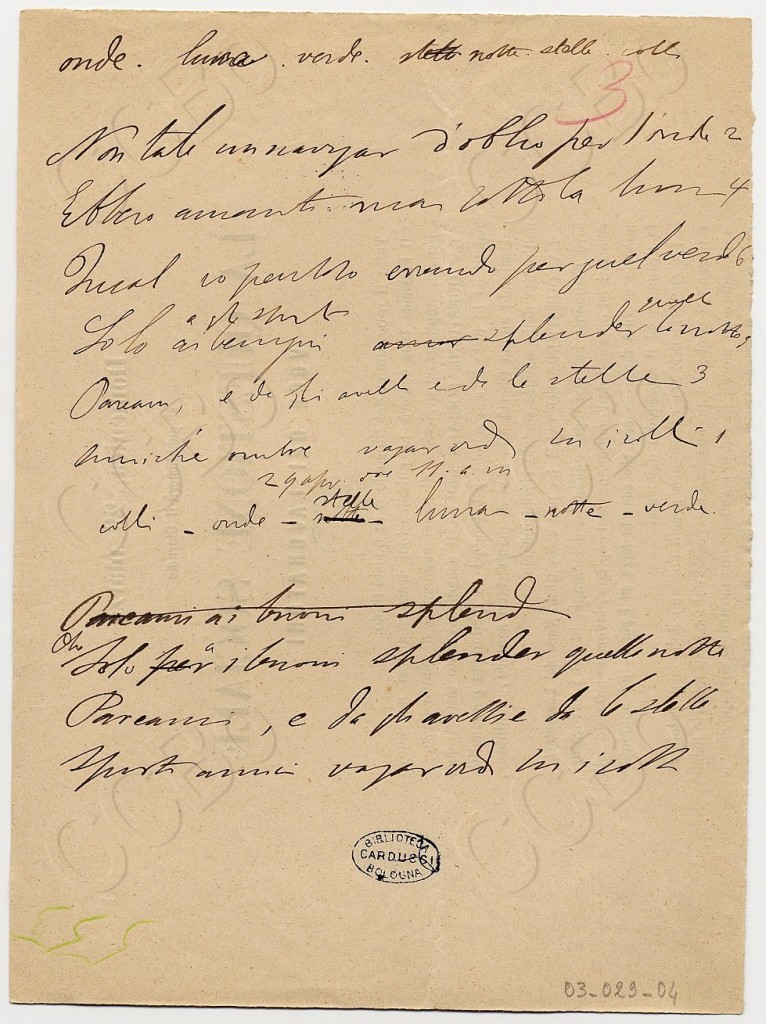 onde. luna. verde. stelle notte. stelle. colli
3
Non tale un navigar d'oblio per l'onde 2
Ebbero amanti mai sotto la luna 4
Qual io errando per quel verde 6
à gli spirti quella
Solo ai buoni amor splender la notte 5
Pareami, e da gli avelli e da le stelle 3
amiche ombre vagar vidi su i colli 1
29 apr. ore 11. a. m
stelle
colli - onde - notte - luna - notte - verde.
Pareami ai buoni splend
Che à
Solo per i buoni splender quella notte
Pareami, e da gli avelli e da le stelle
Spirti amici vagar vidi su i colli
BIBLIOTECA
CARDUCCI
BOLOGNA
03-029-04